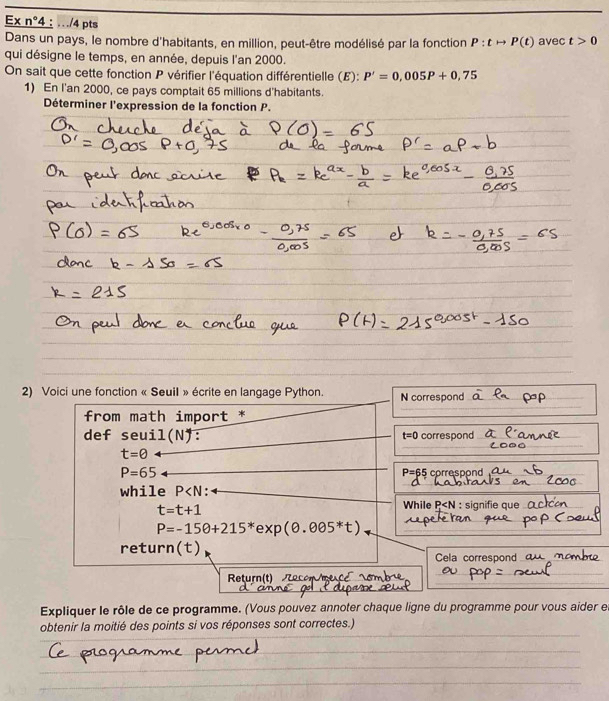 Ex n°4 : .../4 pts
Dans un pays, le nombre d'habitants, en million, peut-être modélisé par la fonction P : t ↦ P(t) avec t > 0
qui désigne le temps, en année, depuis l'an 2000.
On sait que cette fonction P vérifier l'équation différentielle (E): P' = 0,005P + 0,75
1) En l'an 2000, ce pays comptait 65 millions d'habitants.
Déterminer l'expression de la fonction P.
On cherche déja à P(0) = 65
P' = 0,005 P + 0,75 de la forme P' = aP + b
On peut donc écrire P_k = ke^{ax} - b/a = ke^{0,005x} - 0,75/0,005
par identification
P(0) = 65 ke^{0,005×0} - 0,75/0,005 = 65 et k = - 0,75/0,005 = 65
donc k - 150 = 65
k = 215
On peut donc en conclue que P(t) = 215^{0,005t} - 150
2) Voici une fonction « Seuil » écrite en langage Python.
N correspond à la pop
from math import *
def seuil(N):
t=0
P=65
while P<N:
t=t+1
P=-150+215*exp(0.005*t)
return(t)
t=0 correspond à l'année
2000
P=65 correspond au nb
d'habitants en 2000
While P<N : signifie que action
repeter tan que pop < seuil
Cela correspond au nombre
ou pop = seuil
Return(t) nombre
d'anné qui depasse seuil
Expliquer le rôle de ce programme. (Vous pouvez annoter chaque ligne du programme pour vous aider e
obtenir la moitié des points si vos réponses sont correctes.)
Ce programme permet